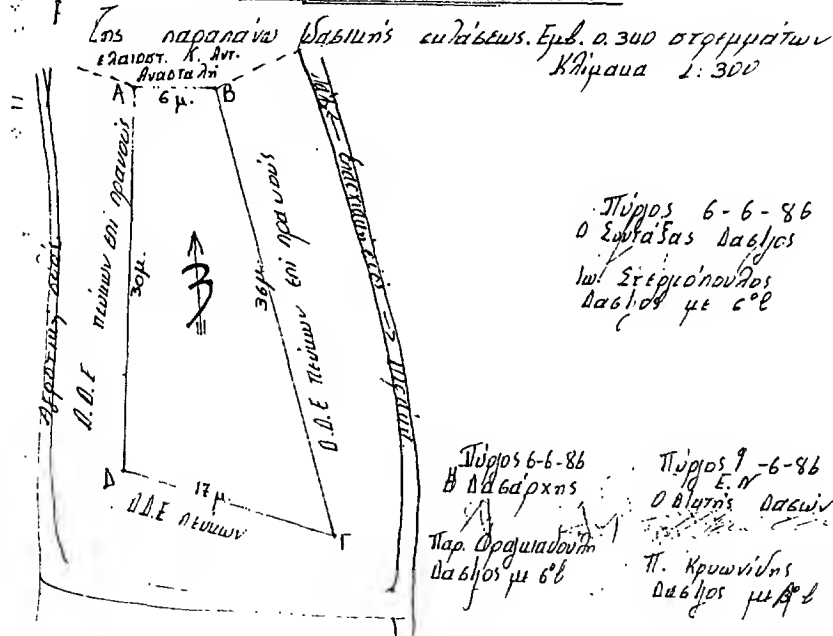 της παραπάνω δασικής εκτάσεως. Εμβ. 0.300 στρεμμάτων
Κλίμακα 1:300
ελαιοστ. Κ. Αντ.
Αναστολή
Α
6 μ.
Β
Αγροτική οδός
Δ.Δ.Ε πεύκων επί πρανούς
30μ.
36μ.
Δ.Δ.Ε πεύκων επί πρανούς
Δ
17 μ.
Δ.Δ.Ε πεύκων
Γ
Πύργος 6-6-86
Ο Συντάξας Δασ/γος
Ιω. Στεργιόπουλος
Δασ/γος με 6°β
Πύργος 6-6-86
Δασάρχης
Παρ.
Δασ/γος με 6°β
Πύργος 9-6-86
Ε.Ν
Ο Δ/ντής Δασών
Π. Κρυωνίδης
Δασ/γος με β